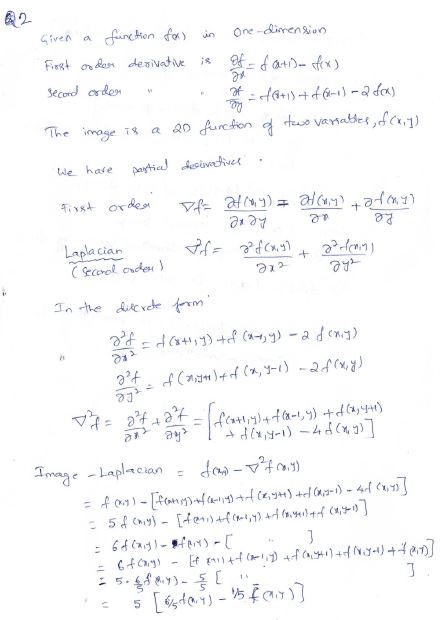 Q2
Given a function f(x) in one-dimension
First order derivative is ∂f/∂x = f(x+1) - f(x)
second order " " ∂f/∂y = f(x+1) + f(x-1) - 2f(x)
The image is a 2D function of two variables, f(x,y)
We have partial derivatives .
First order ∇f = ∂f(x,y)/∂x∂y = ∂f(x,y)/∂x + ∂f(x,y)/∂y
Laplacian ∇²f = ∂²f(x,y)/∂x² + ∂²f(x,y)/∂y²
(second order)
In the discrete form
" ∂²f/∂x² = f(x+1,y) + f(x-1,y) - 2f(x,y)
∂²f/∂y² = f(x,y+1) + f(x,y-1) - 2f(x,y)
∇²f = ∂²f/∂x² + ∂²f/∂y² = [f(x+1,y) + f(x-1,y) + f(x,y+1)
+ f(x,y-1) - 4f(x,y)]
Image - Laplacian = f(x,y) - ∇²f(x,y)
= f(x,y) - [f(x+1,y) + f(x-1,y) + f(x,y+1) + f(x,y-1) - 4f(x,y)]
= 5f(x,y) - [f(x+1) + f(x-1,y) + f(x,y+1) + f(x,y-1)]
= 6f(x,y) - f(x,y) - [ " ]
= 6f(x,y) - [f(x+1) + f(x-1,y) + f(x,y+1) + f(x,y-1) + f(x,y)]
= 5·6/5 f(x,y) - 5/5 [ " ]
= 5 [6/5 f(x,y) - 1/5 f̄(x,y)]